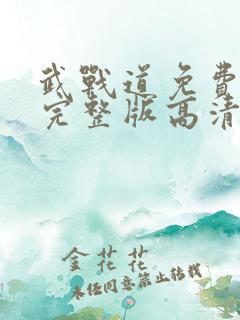 武戰道免費
完整版高清
金花花
未經同意禁止轉載